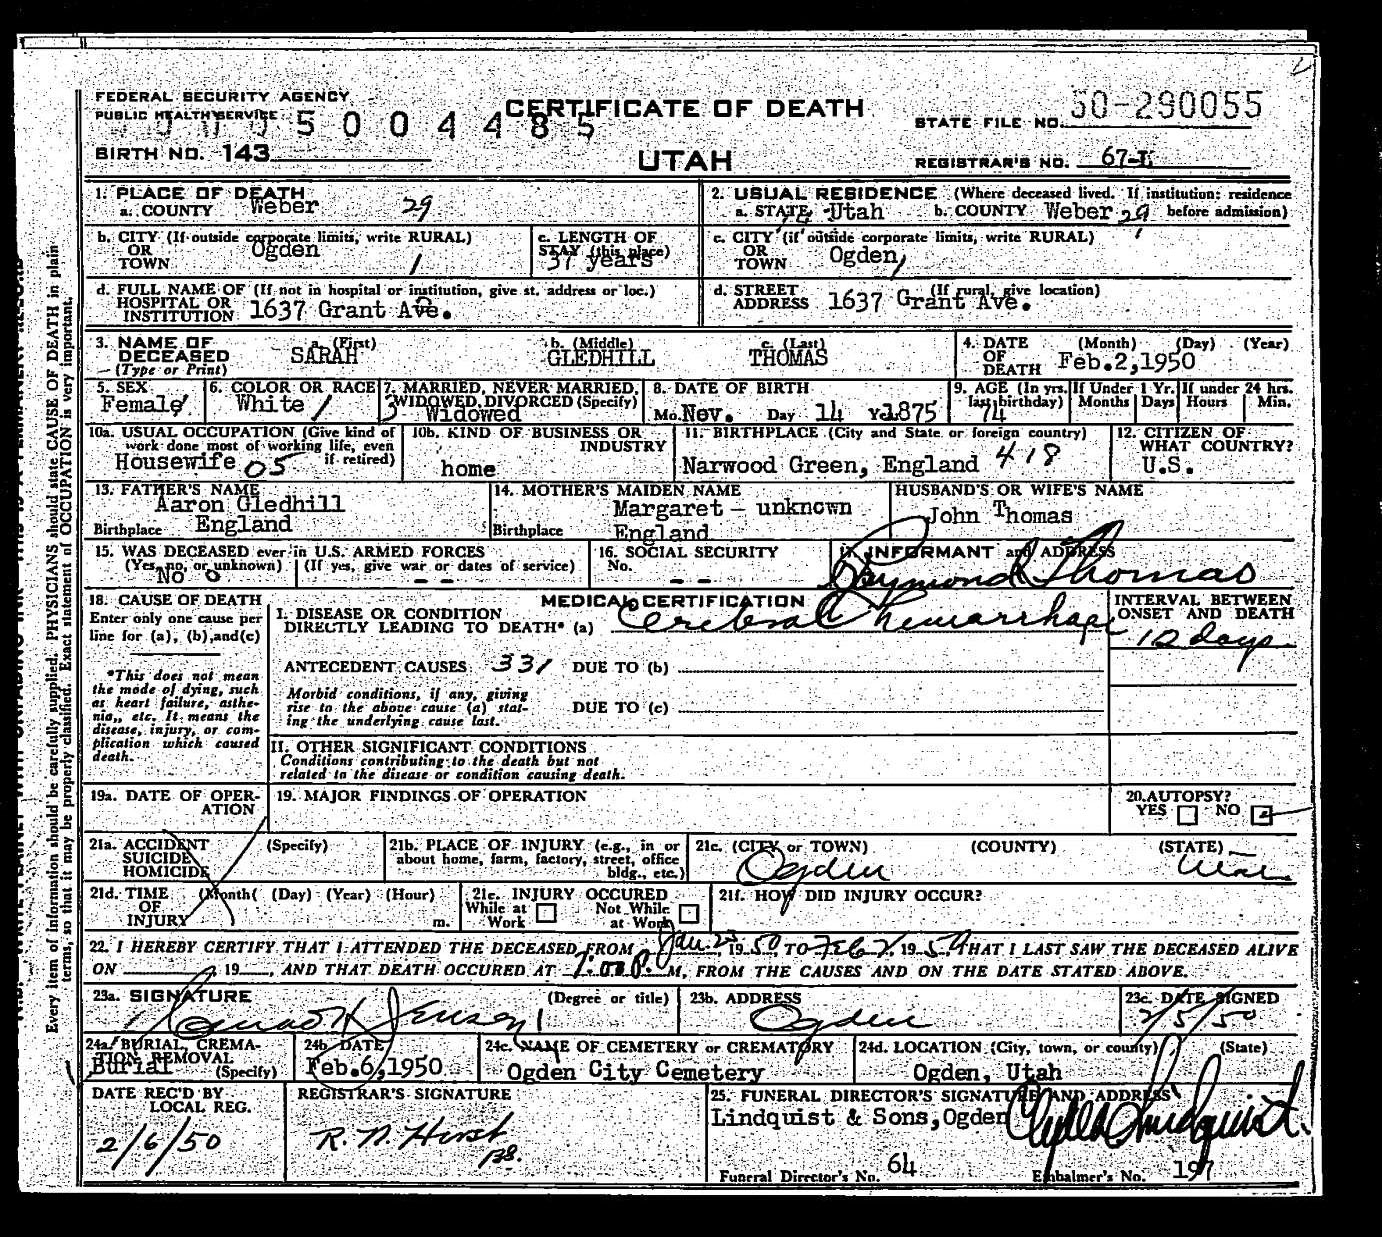 FEDERAL SECURITY AGENCY
PUBLIC HEALTH SERVICE
5004485
CERTIFICATE OF DEATH
UTAH
STATE FILE NO. 50-290055
BIRTH NO. 143
REGISTRAR'S NO. 67-L
1. PLACE OF DEATH
a. COUNTY Weber 29
2. USUAL RESIDENCE (Where deceased lived. If institution: residence before admission)
a. STATE Utah b. COUNTY Weber 29
b. CITY (If outside corporate limits, write RURAL)
OR TOWN Ogden 1
c. LENGTH OF STAY (this place)
57 years
c. CITY (if outside corporate limits, write RURAL)
OR TOWN Ogden,
d. FULL NAME OF (If not in hospital or institution, give st. address or loc.)
HOSPITAL OR INSTITUTION 1637 Grant Ave.
d. STREET ADDRESS (If rural, give location)
1637 Grant Ave.
3. NAME OF DECEASED (Type or Print)
a. (First) b. (Middle) c. (Last)
SARAH GLEDHILL THOMAS
4. DATE OF DEATH (Month) (Day) (Year)
Feb.2,1950
5. SEX
Female
6. COLOR OR RACE
White
7. MARRIED, NEVER MARRIED, WIDOWED, DIVORCED (Specify)
Widowed
8. DATE OF BIRTH
Mo. Nov. Day 14 Yr. 1875
9. AGE (In yrs. last birthday) 74
If Under 1 Yr. Months Days
If under 24 hrs. Hours Min.
10a. USUAL OCCUPATION (Give kind of work done most of working life, even if retired)
Housewife 05
10b. KIND OF BUSINESS OR INDUSTRY
home
11. BIRTHPLACE (City and State or foreign country)
Narwood Green, England 418
12. CITIZEN OF WHAT COUNTRY?
U.S.
13. FATHER'S NAME
Aaron Gledhill
Birthplace England
14. MOTHER'S MAIDEN NAME
Margaret - unknown
Birthplace England
HUSBAND'S OR WIFE'S NAME
John Thomas
15. WAS DECEASED ever in U.S. ARMED FORCES
(Yes, no, or unknown) (If yes, give war or dates of service)
No 0 --
16. SOCIAL SECURITY
No. --
17. INFORMANT and ADDRESS
Raymond Thomas
18. CAUSE OF DEATH
Enter only one cause per line for (a), (b), and (c)
*This does not mean the mode of dying, such as heart failure, asthenia, etc. It means the disease, injury, or complication which caused death.
MEDICAL CERTIFICATION
I. DISEASE OR CONDITION DIRECTLY LEADING TO DEATH* (a) Cerebral hemarrhage
INTERVAL BETWEEN ONSET AND DEATH
12 days
ANTECEDENT CAUSES 331 DUE TO (b)
Morbid conditions, if any, giving rise to the above cause (a) stating the underlying cause last.
DUE TO (c)
II. OTHER SIGNIFICANT CONDITIONS
Conditions contributing to the death but not related to the disease or condition causing death.
19a. DATE OF OPERATION
19. MAJOR FINDINGS OF OPERATION
20. AUTOPSY?
YES NO
21a. ACCIDENT SUICIDE HOMICIDE (Specify)
21b. PLACE OF INJURY (e.g., in or about home, farm, factory, street, office bldg., etc.)
21c. (CITY or TOWN) (COUNTY) (STATE)
Ogden Utah
21d. TIME OF INJURY (Month) (Day) (Year) (Hour) m.
21e. INJURY OCCURED
While at Work Not While at Work
21f. HOW DID INJURY OCCUR?
22. I HEREBY CERTIFY THAT I ATTENDED THE DECEASED FROM Jan. 23, 1950, TO Feb 2, 1950, THAT I LAST SAW THE DECEASED ALIVE
ON , 19 , AND THAT DEATH OCCURED AT 7:00 P. M, FROM THE CAUSES AND ON THE DATE STATED ABOVE.
23a. SIGNATURE (Degree or title)
Conrad H Jenson
23b. ADDRESS
Ogden
23c. DATE SIGNED
2/5/50
24a. BURIAL, CREMATION, REMOVAL (Specify)
Burial
24b. DATE
Feb.6,1950
24c. NAME OF CEMETERY or CREMATORY
Ogden City Cemetery
24d. LOCATION (City, town, or county) (State)
Ogden, Utah
DATE REC'D BY LOCAL REG.
2/6/50
REGISTRAR'S SIGNATURE
R. N. Hirst
25. FUNERAL DIRECTOR'S SIGNATURE AND ADDRESS
Lindquist & Sons, Ogden
Funeral Director's No. 64
Embalmer's No. 197
Every item of information should be carefully supplied. PHYSICIANS should state CAUSE OF DEATH in plain
terms, so that it may be properly classified. Exact statement of OCCUPATION is very important.